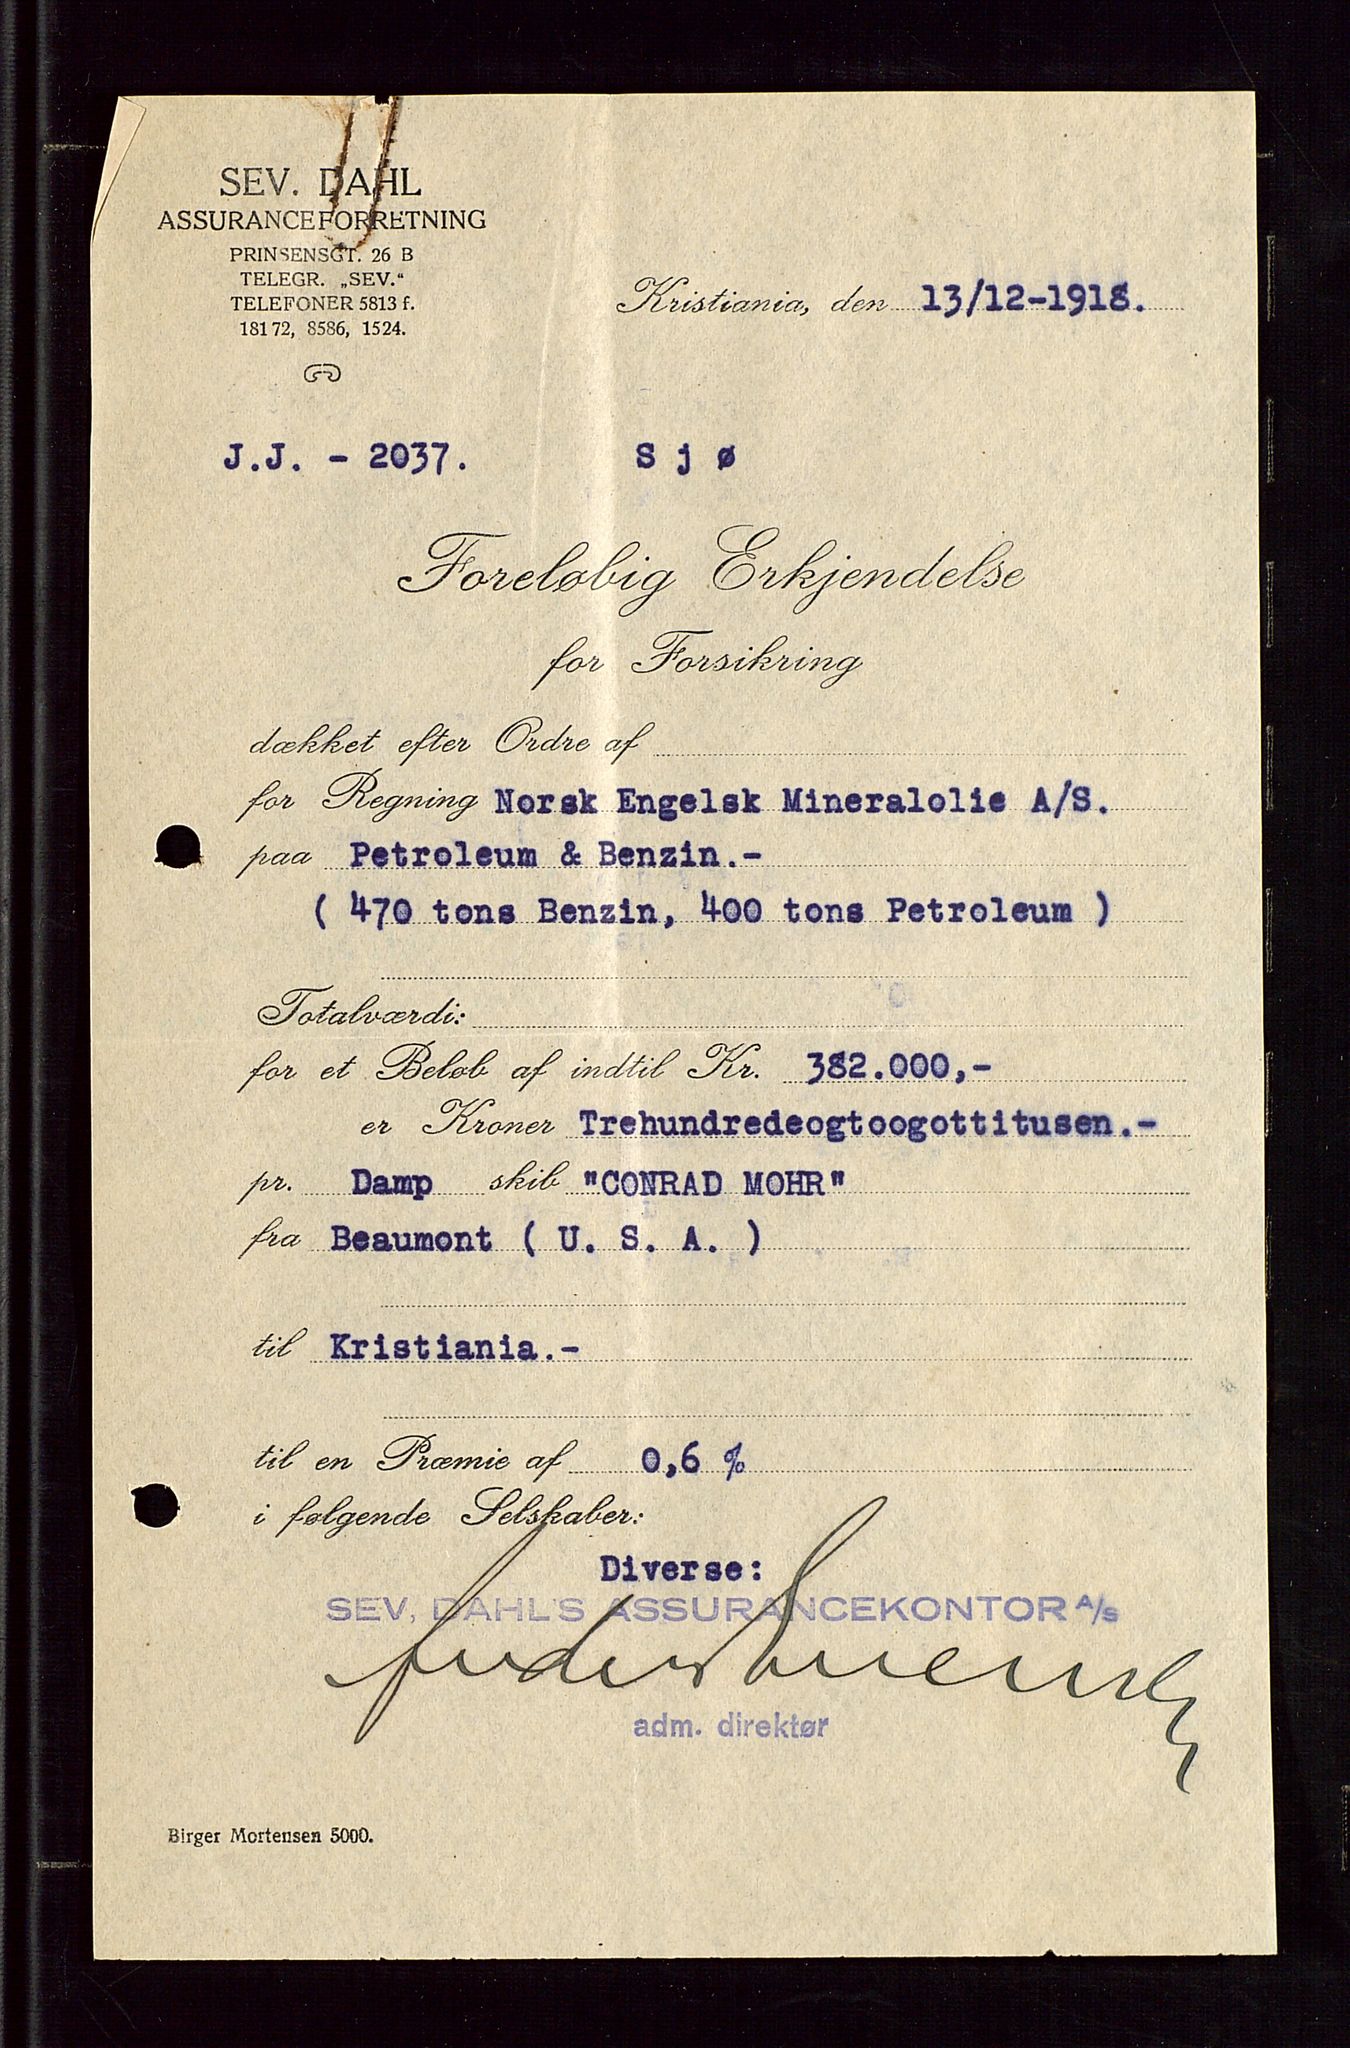 SEV. DAHL
ASSURANCEFORRETNING
PRINSENSGT. 26 B
TELEGR. „SEV.“
TELEFONER 5813 f.
18172, 8586, 1524.
Kristiania, den 13/12-1918.
J.J. - 2037. Sjø
Foreløbig Erkjendelse
for Forsikring
dækket efter Ordre af
for Regning Norsk Engelsk Mineralolie A/S.
paa Petroleum & Benzin.-
( 470 tons Benzin, 400 tons Petroleum )
Totalværdi:
for et Beløb af indtil Kr. 382.000,-
er Kroner Trehundredeogtoogottitusen.-
pr. Damp skib "CONRAD MOHR"
fra Beaumont ( U. S. A. )
til Kristiania.-
til en Præmie af 0,6 %
i følgende Selskaber:
Diverse:
SEV. DAHL'S ASSURANCEKONTOR A/S
adm. direktør
Birger Mortensen 5000.